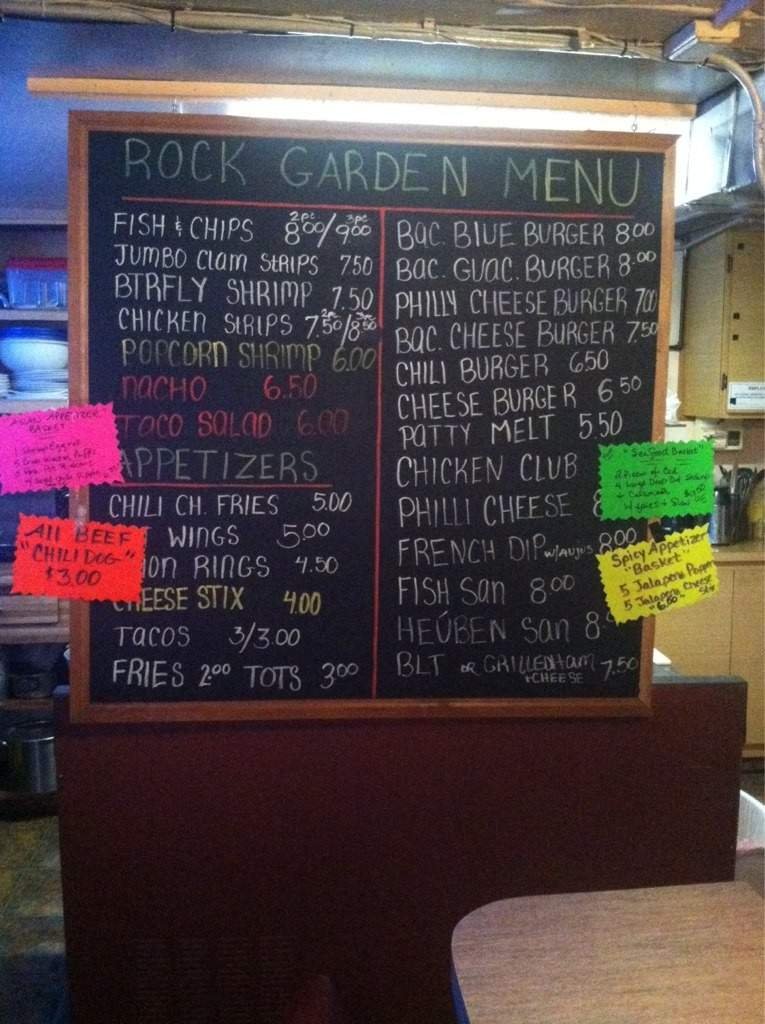 ROCK GARDEN MENU
FISH & CHIPS 2pc 8.00/3pc 9.00
JUMBO Clam StRIPS 7.50
BTRFLY SHRIMP 7.50
CHICKEN StRIPS 2pc 7.50/3pc 8.50
POPCORN SHRIMP 6.00
NACHO 6.50
TACO SALAD 6.00
APPETIZERS
CHILI CH. FRIES 5.00
WINGS 5.00
ION RINGS 4.50
CHEESE STIX 4.00
TACOS 3/3.00
FRIES 2.00 TOTS 3.00
BAC. BLUE BURGER 8.00
BAC. GUAC. BURGER 8.00
PHILLY CHEESE BURGER 7.00
BAC. CHEESE BURGER 7.50
CHILI BURGER 6.50
CHEESE BURGER 6.50
PATTY MELT 5.50
CHICKEN CLUB
PHILLI CHEESE 8
FRENCH DIP w/AUJUS 8.00
FISH San 8.00
HEÚBEN San 8.
BLT OR GRILLED HAM + CHEESE 7.50
ASIAN APPETIZER
BASKET
All BEEF
"CHILI DOG"
$3.00
"Seafood Basket"
2 Pieces of Cod
+ Calamari
W/ fries + Slaw
Spicy Appetizer
"Basket"
5 Jalapeno Poppers
5 Jalapeno Cheese
"6.50"